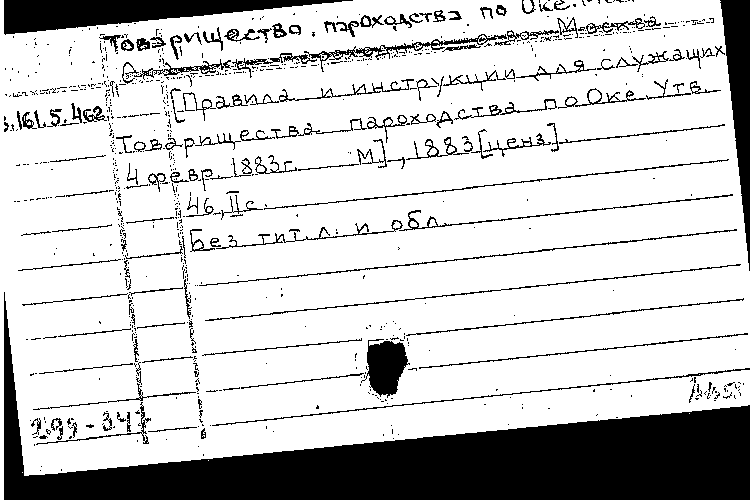 Товарищество. пароходства. по Оке.
Москва
[Правила и инструкции для служащих
.161.5.462
Товарищества пароходства по Оке. Утв.
4 февр. 1883г. М], 1883[ценз].
46, II с.
Без тит. л. и обл.
299-347